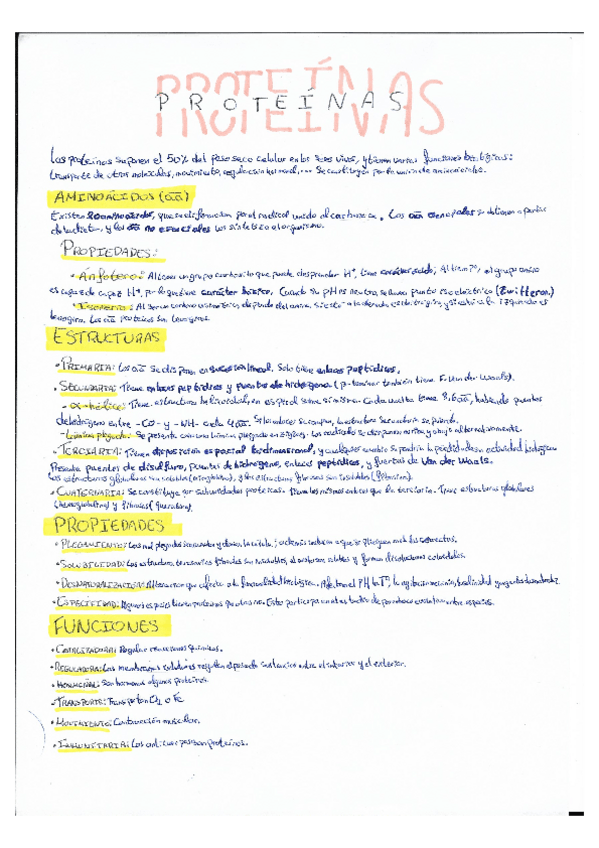 PROTEÍNAS
Las proteínas suponen el 50% del peso seco celular en los seres vivos, y tienen varias funciones biológicas:
transporte de otras moléculas, movimiento, regulación hormonal,... Se constituyen por la unión de aminoácidos.
AMINOÁCIDOS (aa)
Existen 20 aminoácidos, que se diferencian por el radical unido al carbono α. Los aa esenciales se obtienen a partir
de la dieta, y los aa no esenciales los sintetiza el organismo.
PROPIEDADES:
· Anfótero: Al tener un grupo carboxilo que puede desprender H⁺, tiene carácter ácido; Al tener, el grupo amino
es capaz de captar H⁺, por lo que tiene carácter básico. Cuando su pH es neutro, se llama punto isoeléctrico (Zwitterion)
· Isomería: Al ser un carbono asimétrico, depende del amino, si está a la derecha es dextrógiro, y si está a la izquierda es
levógiro. Los aa proteicos son levógiros.
ESTRUCTURAS
· PRIMARIA: Los aa se disponen en sucesión lineal. Solo tiene enlaces peptídicos.
· SECUNDARIA: Tiene enlaces peptídicos y puentes de hidrógeno (β-laminar también tiene F. Van der Waals).
- α-hélice: Tiene estructura helicoidal, en espiral sobre sí misma. Cada vuelta tiene 3,6 aa, habiendo puentes
de hidrógeno entre -CO- y -NH- cada 4 aa. Si los enlaces se rompen, la estructura secundaria se pierde.
- Lámina plegada: Se presenta como una lámina plegada en zigzag. Los radicales se disponen arriba y abajo alternativamente.
· TERCIARIA: Tienen disposición espacial tridimensional, y cualquier cambio supondría la pérdida de su actividad biológica.
Presenta puentes de disulfuro, puentes de hidrógeno, enlaces peptídicos, y fuerzas de Van der Waals.
Las estructuras globulares son solubles (mioglobina), y las estructuras fibrosas son insolubles
· CUATERNARIA: Se constituye por subunidades proteicas. Tiene los mismos enlaces que la terciaria. Tiene estructuras globulares
(hemoglobina) y fibrosas (queratina).
PROPIEDADES
· PLEGAMIENTO: Las mal plegadas son
· SOLUBILIDAD: Las estructuras terciarias fibrosas son insolubles, al contrario solubles y forman disoluciones coloidales.
· DESNATURALIZACIÓN: Alteración que afecta a la funcionalidad biológica. Afectan el pH, la Tª, la
· ESPECIFICIDAD: Algunas especies tienen proteínas que otras no. Esto participa en estudios de parentesco evolutivo entre especies.
FUNCIONES
· CATALIZADORA: Regular reacciones químicas.
· REGULADORA: Las membranas celulares regulan el paso de sustancias entre el interior y el exterior.
· HORMONAL: Son hormonas algunas proteínas.
· TRANSPORTE: Transportan O₂ o Fe
· MOVIMIENTO: Contracción muscular.
· INMUNITARIA: Los anticuerpos son proteínas.